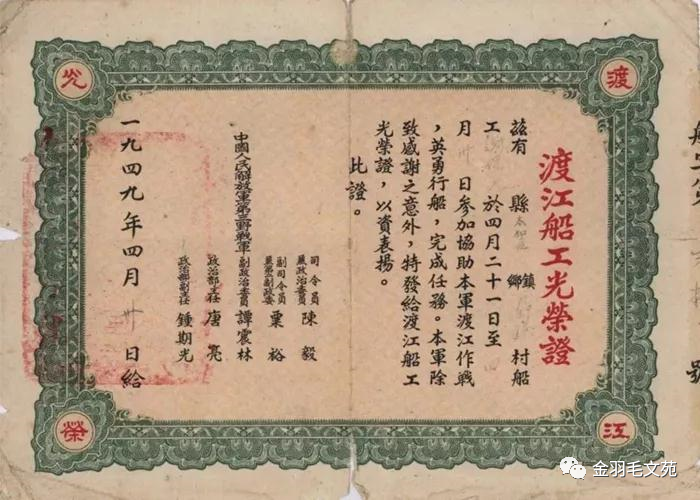 渡江船工光榮證
渡
江
光
榮
茲有 縣 鎮鄉 村船
工 於四月二十一日至四
月卅日參加協助本軍渡江作戰
，英勇行船，完成任務。本軍除
致感謝之意外，特發給渡江船工
光榮證，以資表揚。
此證。
中國人民解放軍第三野戰軍
司令員兼政治委員 陳毅
副司令員兼第二副政委 粟裕
副政治委員 譚震林
政治部主任 唐亮
政治部副主任 鍾期光
一九四九年四月卅日給
號
金羽毛文苑